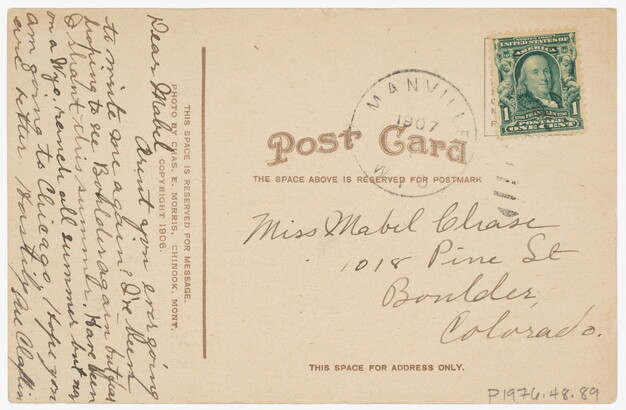 Dear Mabel
Arent you ever going
to write me again? I've been
hoping to see Boulder again but guess
I shant this summer. Have been
on a Wyo. ranch all summer but now
am going to Chicago. Hope you
are better. Hastily, Sue
THIS SPACE IS RESERVED FOR MESSAGE.
PHOTO BY CHAS. E. MORRIS, CHINOOK, MONT.
COPYRIGHT 1906.
MANVILLE
1907
WYO
UNITED STATES OF
AMERICA
1 1
FRANKLIN
POSTAGE
ONE CENT
Post Card
THE SPACE ABOVE IS RESERVED FOR POSTMARK
Miss Mabel Chase
1018 Pine St
Boulder,
Colorado.
THIS SPACE FOR ADDRESS ONLY.
P1976.48.89